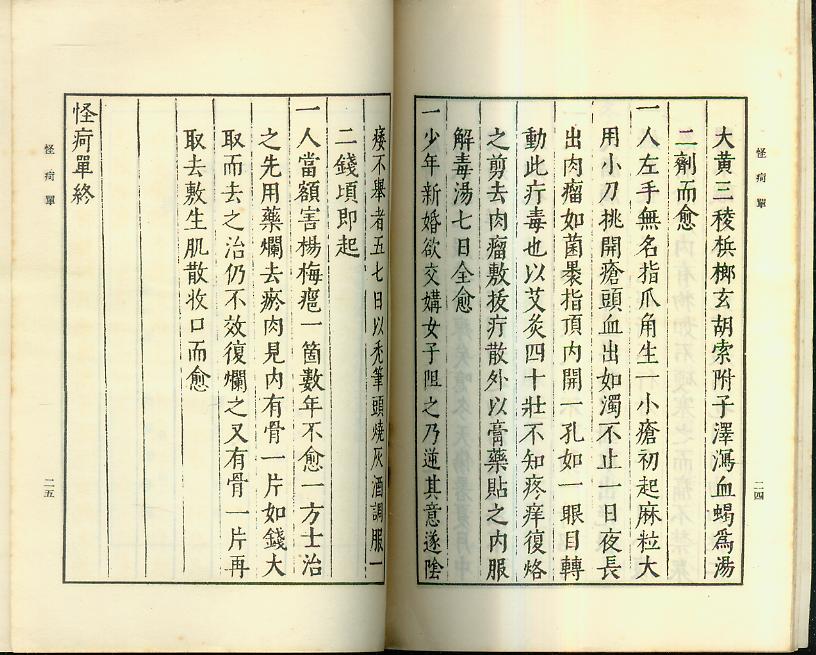 怪疴單
二四
大黃三稜梹榔玄胡索附子澤瀉血蝎爲湯
二劑而愈
一人左手無名指爪角生一小瘡初起麻粒大
用小刀挑開瘡頭血出如濁不止一日夜長
出肉瘤如菌裹指頂內開一孔如一眼目轉
動此疔毒也以艾灸四十壯不知疼痒復烙
之剪去肉瘤敷拔疔散外以膏藥貼之內服
解毒湯七日全愈
一少年新婚欲交媾女子阻之乃逆其意遂陰
痿不舉者五七日以秃筆頭燒灰酒調服一
二錢頃即起
一人當額害楊梅瘡一箇數年不愈一方士治
之先用藥爛去瘀肉見內有骨一片如錢大
取而去之治仍不效復爛之又有骨一片再
取去敷生肌散收口而愈
怪疴單終
怪疴單
二五